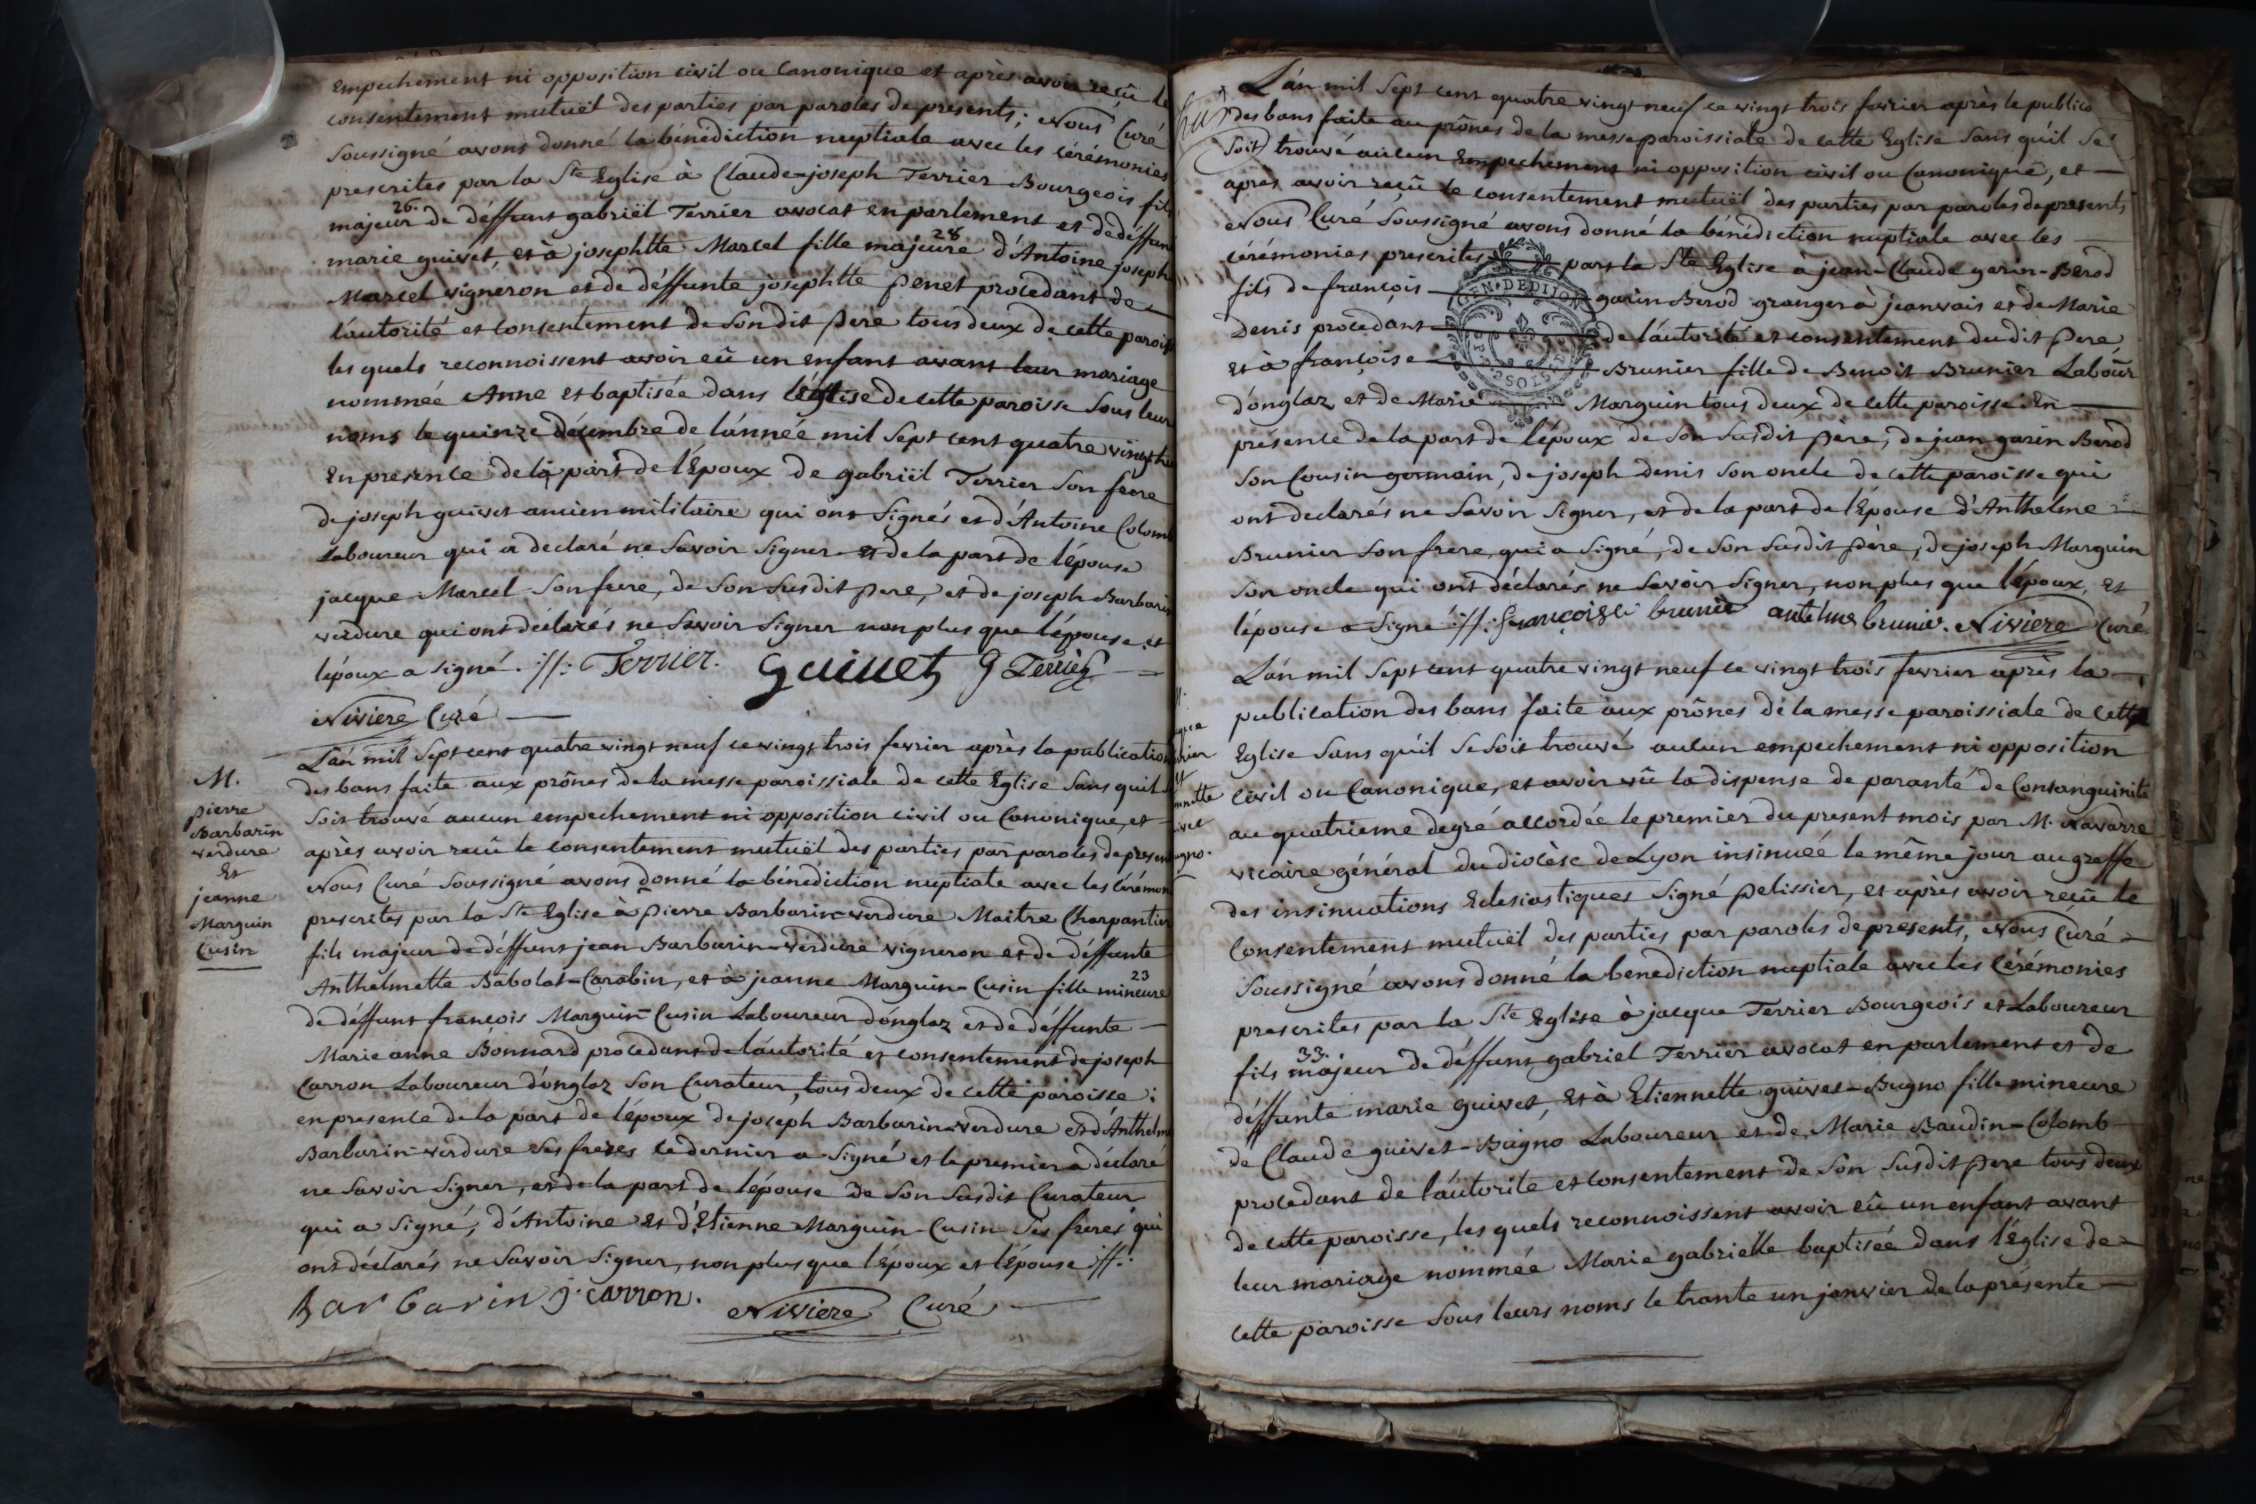 Empechement ni opposition civil ou Canonique et après avoir reçû le
consentement mutuël des parties par paroles de presents; Nous Curé
Soussigné avons donné la bénédiction nuptiale avec les cérémonies
prescrites par la Ste Eglise à Claude-joseph Terrier Bourgeois fils
majeur 26. de déffunt gabriël Terrier avocat en parlement et de déffunte
marie guivet, et à josephtte Marcel fille majeure 28 d'Antoine joseph
Marcel vigneron et de déffunte josephtte Penet procedant de
l'autorité et consentement de Son dit Pere tous deux de cette paroisse
les quels reconnoissent avoir eû un enfant avant leur mariage
nommée Anne et baptisée dans l'église de cette paroisse Sous leur
noms le quinze décembre de l'année mil Sept cent quatre vingt
En presence de la part de l'Epoux de gabriël Terrier Son frere
de joseph guivet ancien militaire qui ont Signés et d'Antoine Colomb
Laboureur qui a declaré ne Savoir Signer et de la part de l'épouse
jacque Marcel Son frere, de Son Susdit Pere, et de joseph Barbarin
verdure qui ont déclarés ne Savoir Signer non plus que l'épouse et
l'époux a Signé. ://: Terrier. Guiuet G Terrier
Niviere Curé
M.
pierre
Barbarin
verdure
Et
jeanne
Marguin
Cusin
L'an mil Sept cent quatre vingt neuf ce vingt trois fevrier après la publication
des bans faite aux prônes de la messe paroissiale de cette Eglise Sans quil Se
Soit trouvé aucun empechement ni opposition civil ou Canonique, et
après avoir reçû le consentement mutuël des parties par paroles de present
Nous Curé Soussigné avons donné la bénediction nuptiale avec les Cérémon
prescrites par la Ste Eglise à Pierre Barbarin-verdure Maitre Charpantier
fils majeur de déffunt jean Barbarin-verdure vigneron et de déffunte
Anthelmette Babolat-Carabin, et à jeanne Marguin-Cusin fille mineure 23
de déffunt françois Marguin-Cusin Laboureur d'onglaz et de déffunte
Marie anne Bonnard procedant de l'autorité et consentement de joseph
Carron Laboureur d'onglaz Son Curateur, tous deux de cette paroisse;
en presence de la part de l'époux de joseph Barbarin-verdure et d'Anthelme
Barbarin-verdure Ses freres ce dernier a Signé et le premier a déclaré
ne Savoir Signer, et de la part de l'épouse de Son Susdit Curateur
qui a Signé, d'Antoine et d'Etienne Marguin-Cusin Ses freres qui
ont déclarés ne Savoir Signer, non plus que l'époux et l'épouse ://:
Barbarin j. carron. Niviere Curé
L'an mil Sept cent quatre vingt neuf ce vingt trois fevrier après le publica
des bans faite au prônes de la messe paroissiale de cette Eglise Sans qu'il Se
Soit trouvé aucun Empechement ni opposition civil ou Canonique, et
après avoir reçû le consentement mutuël des parties par paroles de presents
Nous Curé Soussigné avons donné la bénédiction nuptiale avec les
cérémonies prescrites par la Ste Eglise à jean-Claude garin-Berod
fils de françois garin Berod granger à jeanvais et de Marie
Denis procedant de l'autorité et consentement du dit Pere
et à françoise Brunier fille de Benoit Brunier Labour
d'onglaz et de Marie Marguin tous deux de cette paroisse. En
presence de la part de l'époux de Son Susdit Père, de jean garin Berod
Son Cousin germain, de joseph denis Son oncle de cette paroisse qui
ont declarés ne Savoir Signer, et de la part de l'Epouse d'Anthelme
Brunier Son frere qui a Signé, de Son Susdit Père, de joseph Marguin
Son oncle qui ont déclarés ne Savoir Signer, non plus que l'époux, Et
l'épouse a Signé ://: françoise brunier antelme brunier. Niviere Curé
GEN. DE DIJON
L'an mil Sept cent quatre vingt neuf ce vingt trois fevrier après la
publication des bans faite aux prônes de la messe paroissiale de cette
Eglise Sans qu'il Se Soit trouvé aucun empechement ni opposition
civil ou Canonique, et avoir vû la dispense de paranté de Consanguinité
au quatrieme degré accordée le premier du present mois par M. Navarre
vicaire général du diocèse de Lyon insinuée le même jour au greffe
des insinuations Eclesiastiques Signé Pelissier, et après avoir reçû le
Consentement mutuël des parties par paroles de présents, Nous Curé
Soussigné avons donné la benediction nuptiale avec les Cérémonies
prescrites par la Ste Eglise à jacque Terrier Bourgeois et Laboureur
fils majeur 33. de déffunt gabriel Terrier avocat en parlement et de
déffunte marie guivet, Et à Etiennette guivet-Bugno fille mineure
de Claude guivet-Bugno Laboureur et de Marie Baudin-Colomb
procedant de l'autorite et consentement de Son Susdit Pere tous deux
de cette paroisse, les quels reconnoissent avoir eû un enfant avant
leur mariage nommée Marie gabrielle baptisée dans l'Eglise de
cette paroisse Sous leurs noms le trante un janvier de la présente